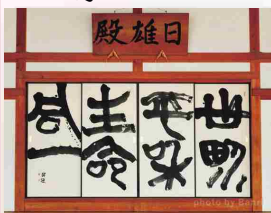 日雄殿
世界
平和
生命
photo by